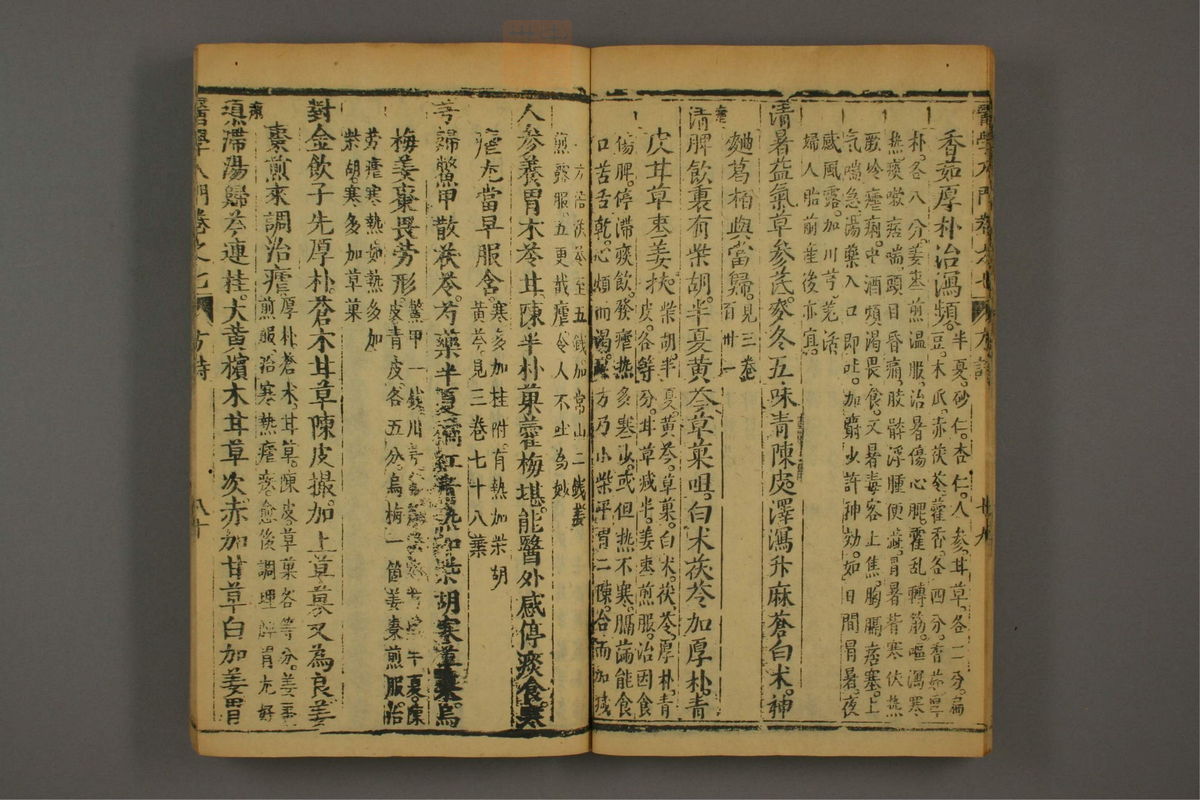 醫學入門卷之七
方詩
廿九
香茹厚朴治瀉頻。半夏。砂仁。杏仁。人參。甘草。各二分。扁
豆。木瓜。赤茯苓。藿香。各四分。香茹。厚
朴。各八分。姜棗煎温服。治暑傷心脾。霍亂轉筋。嘔瀉寒
熱。痰嗽痞喘。頭目昏痛。肢骸浮腫。便
厥冷。瘧痢。中酒煩渴。畏食。又暑毒客上焦。胸膈痞塞。上
氣喘急。湯藥入口即吐。加麝少許神効。如日間冒暑。夜
感風露。加川芎羌活
婦人胎前産後亦宜。
清暑益氣草參芪。麥冬五味青陳皮澤瀉升麻蒼白术。神
麯葛栢與當歸。見三卷
百卅一
瘧
清脾飲裏有柴胡。半夏黄芩草菓咀。白术茯苓加厚朴。青
皮甘草棗姜扶。柴胡。半夏。黄芩。草菓。白术。茯苓。厚朴。青
皮。各等分。甘草减半。姜棗煎服。治因食
傷脾。停滯痰飲。發瘧熱多寒少。或但熱不寒。膈滿能食
口苦舌乾。心煩而渴。方乃小柴平胃二陳。合而加减
一方治茯苓至五錢加常山二錢姜
煎露服五更截瘧令人不吐爲妙
人參養胃术苓甘陳半朴菓藿梅堪。能醫外感停痰食。寒
瘧尤當早服含。寒多加桂附。有熱加柴胡
黄芩見三卷七十八葉
芎歸鱉甲散茯苓。芍藥半夏橘紅青熱加柴胡寒草菓。烏
梅姜棗畏勞形。鱉甲一錢川芎
皮青皮各五分。烏梅一箇姜棗煎服治
勞瘧寒熱如熱多加
柴胡。寒多加草菓
對金飲子先厚朴。蒼术甘草陳皮撮。加上草菓又為良姜
棗煎來調治瘧。厚朴蒼术。甘草。陳皮草菓各等分。姜棗
煎服治寒熱瘧疾愈後調理脾胃尤好
痢
滯湯歸芩連桂。大黄檳木甘草次赤加甘草白加姜胃
醫學入門卷之七
方詩
八十